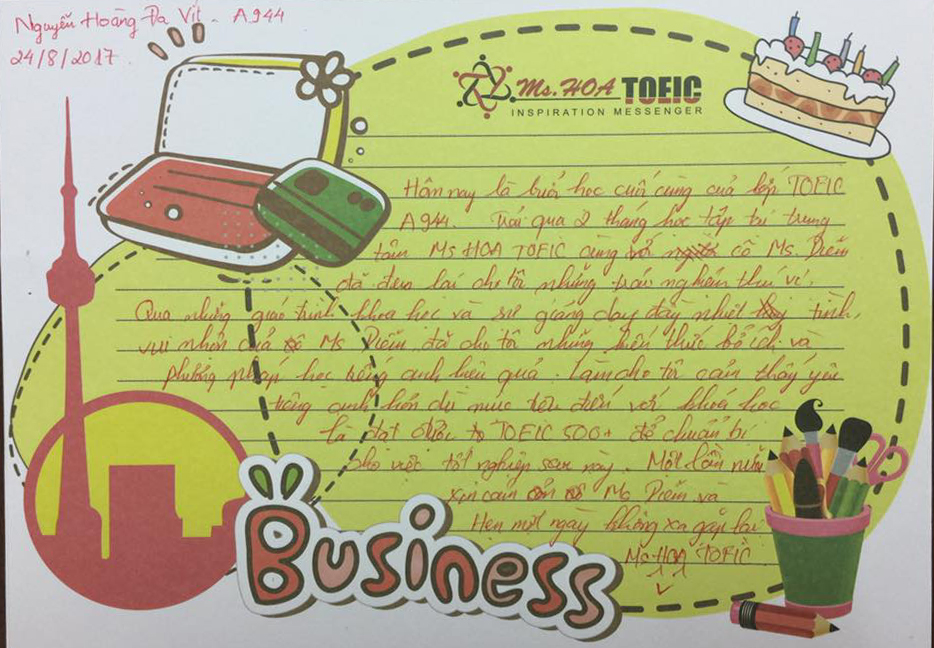 Nguyễn Hoàng Đa Vít - A944
24/8/2017
Ms.HOA TOEIC
INSPIRATION MESSENGER
Hôm nay là buổi học cuối cùng của lớp TOEIC
A944. Trải qua 2 tháng học tập tại trung
tâm Ms HOA TOEIC cùng với cô Ms. Diễm
đã đem lại cho tôi những trải nghiệm thú vị.
Qua những giáo trình khoa học và sự giảng dạy đầy nhiệt tình,
vui nhộn của Ms Diễm đã cho tôi những kiến thức bổ ích và
phương pháp học tiếng anh hiệu quả. Làm cho tôi cảm thấy yêu
tiếng anh hơn dù mục tiêu đến với khoá học
là đạt được TOEIC 500+ để chuẩn bị
cho việc tốt nghiệp sau này. Một lần nữa
xin cảm ơn cô Ms Diễm và
Hẹn một ngày không xa gặp lại
Ms HOA TOEIC
Business